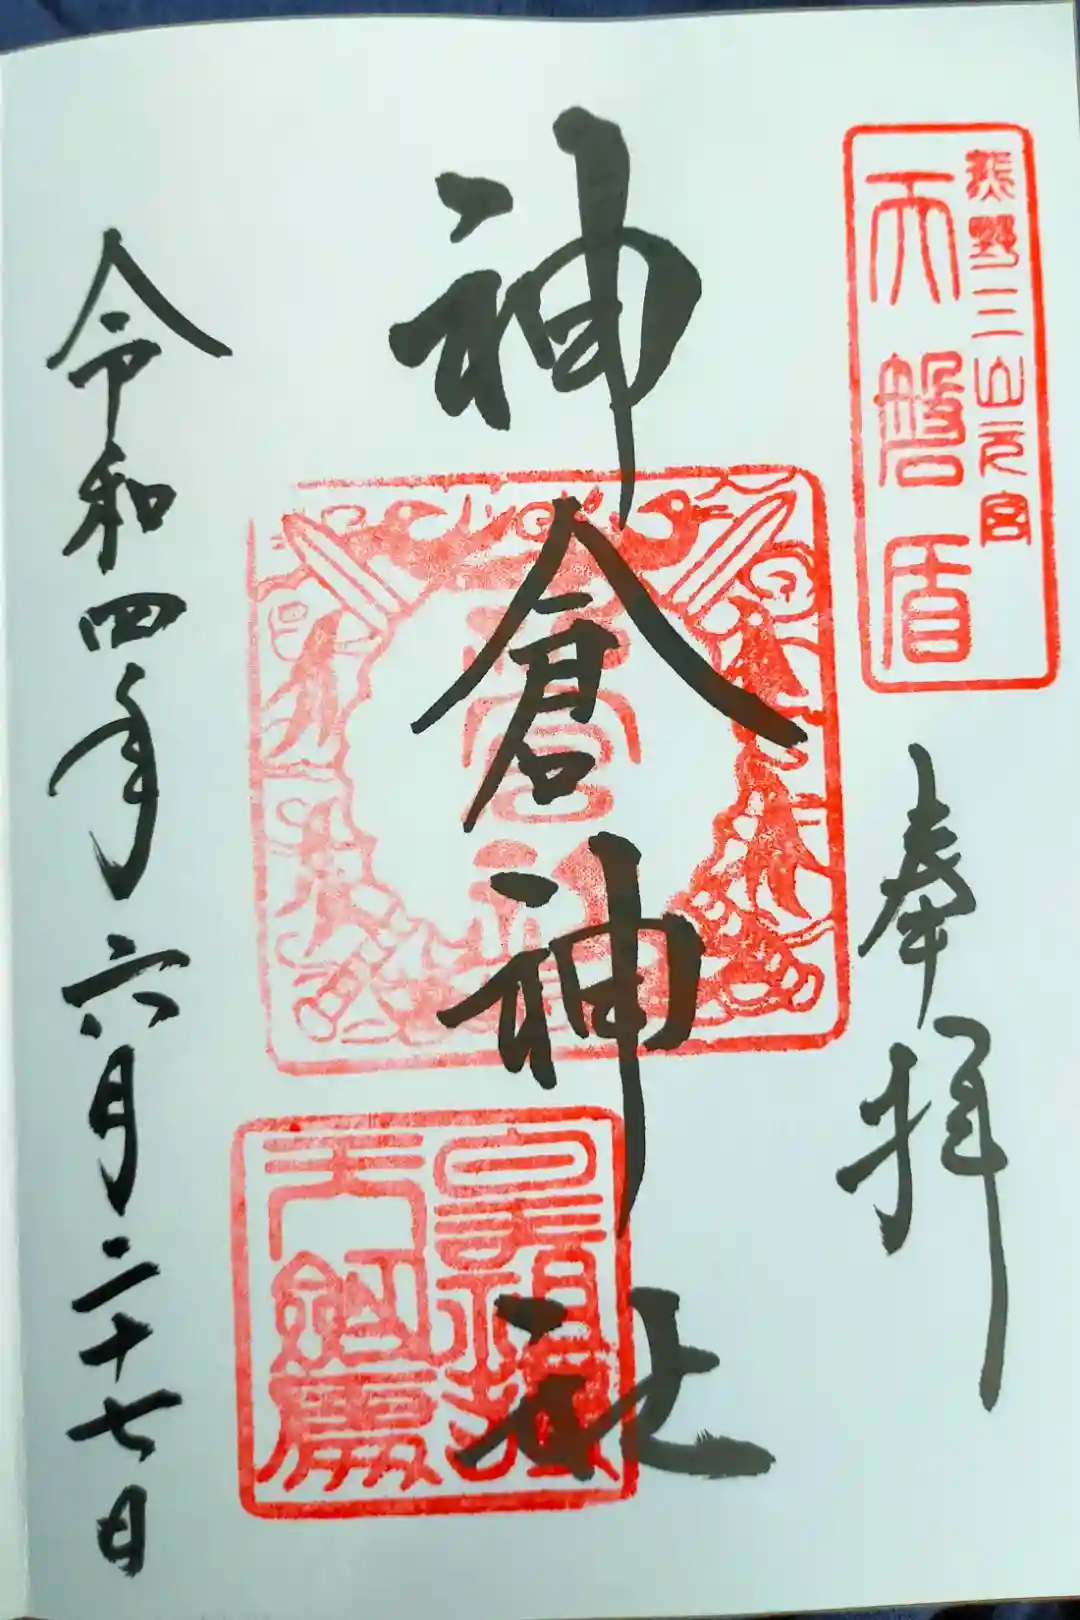 熊野三山元宮
天磐盾
奉拝
神倉神社
皇祖摂
天劔
令和四年六月二十七日